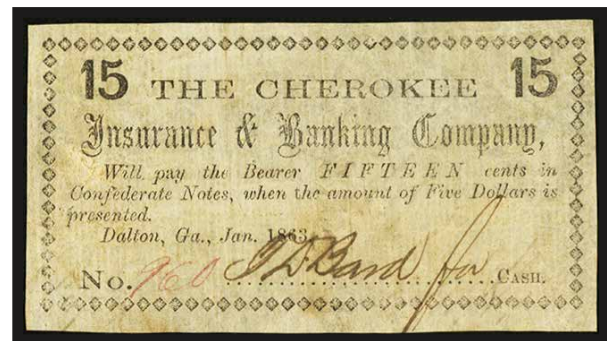 15 THE CHEROKEE 15
Insurance & Banking Company,
Will pay the Bearer FIFTEEN cents in
Confederate Notes, when the amount of Five Dollars is
presented.
Dalton, Ga., Jan. 1863
No. 960 for CASH.